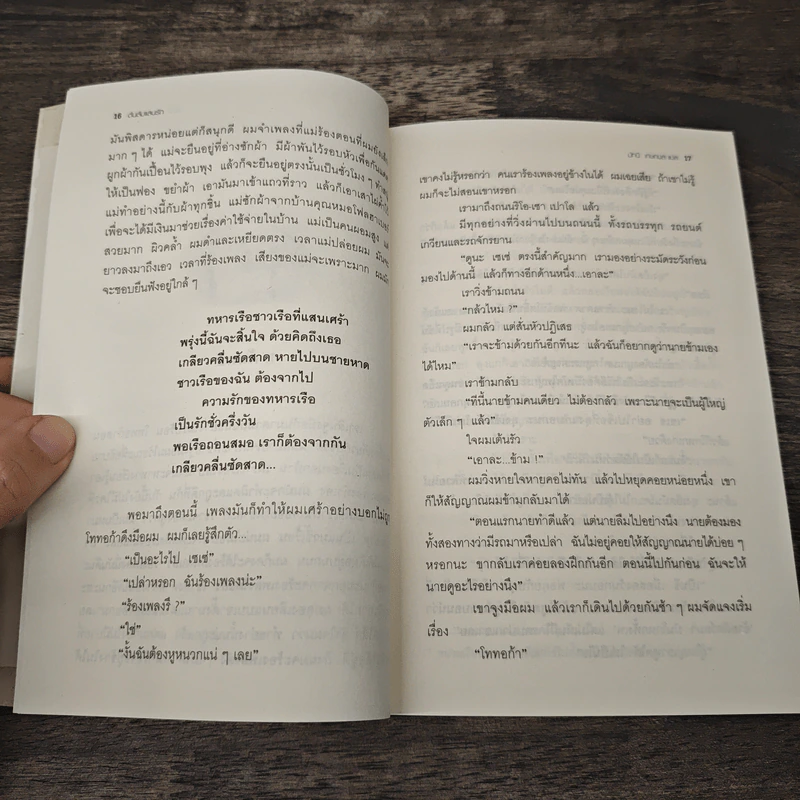 16 ต้นส้มแสนรัก
มันพิสดารหน่อยแต่ก็สนุกดี ผมจำเพลงที่แม่ร้องตอนที่ผมยังเล็ก
มาก ๆ ได้ แม่จะยืนอยู่ที่อ่างซักผ้า มีผ้าพันไว้รอบหัวเพื่อกันแดด
ผูกผ้ากันเปื้อนไว้รอบพุง แล้วก็จะยืนอยู่ตรงนั้นเป็นชั่วโมง ๆ
ให้เป็นฟอง ขยำผ้า เอามันมาเข้าแถวที่ราว แล้วก็เอาเสาไม้
แม่ทำอย่างนี้กับผ้าทุกชิ้น แม่ซักผ้าจากบ้านคุณหมอ
เพื่อจะได้มีเงินมาช่วยเรื่องค่าใช้จ่ายในบ้าน แม่เป็นคนผอมสูง แต่
สวยมาก ผิวคล้ำ ผมดำและเหยียดตรง เวลาแม่ปล่อยผม มัน
ยาวลงมาถึงเอว เวลาที่ร้องเพลง เสียงของแม่จะเพราะมาก ผมมัก
จะชอบยืนฟังอยู่ใกล้ ๆ
ทหารเรือชาวเรือที่แสนเศร้า
พรุ่งนี้ฉันจะสิ้นใจ ด้วยคิดถึงเธอ
เกลียวคลื่นซัดสาด หายไปบนชายหาด
ชาวเรือของฉัน ต้องจากไป
ความรักของทหารเรือ
เป็นรักชั่วครึ่งวัน
พอเรือถอนสมอ เราก็ต้องจากกัน
เกลียวคลื่นซัดสาด...
พอมาถึงตอนนี้ เพลงมันก็ทำให้ผมเศร้าอย่างบอกไม่ถูก
โททอก้าดึงมือผม ผมก็เลยรู้สึกตัว...
“เป็นอะไรไป เซเซ่”
“เปล่าหรอก ฉันร้องเพลงน่ะ”
“ร้องเพลงรึ ?”
“ใช่”
“งั้นฉันต้องหูหนวกแน่ ๆ เลย”
17
เขาคงไม่รู้หรอกว่า คนเราร้องเพลงอยู่ข้างในได้ ผมเฉยเสีย ถ้าเขาไม่รู้
ผมก็จะไม่สอนเขาหรอก
เรามาถึงถนนริโอ-เซา เปาโล แล้ว
มีทุกอย่างที่วิ่งผ่านไปบนถนนนี้ ทั้งรถบรรทุก รถยนต์
เกวียนและรถจักรยาน
“ดูนะ เซเซ่ ตรงนี้สำคัญมาก เรามองอย่างระมัดระวังก่อน
มองไปด้านนี้ แล้วก็ทางอีกด้านหนึ่ง...เอาละ”
เราวิ่งข้ามถนน
“กลัวไหม ?”
ผมกลัว แต่สั่นหัวปฏิเสธ
“เราจะข้ามด้วยกันอีกทีนะ แล้วฉันก็อยากดูว่านายข้ามเอง
ได้ไหม”
เราข้ามกลับ
“ทีนี้นายข้ามคนเดียว ไม่ต้องกลัว เพราะนายจะเป็นผู้ใหญ่
ตัวเล็ก ๆ แล้ว”
ใจผมเต้นรัว
“เอาละ...ข้าม !”
ผมวิ่งหายใจหายคอไม่ทัน แล้วไปหยุดคอยหน่อยหนึ่ง เขา
ก็ให้สัญญาณผมข้ามกลับมาได้
“ตอนแรกนายทำดีแล้ว แต่นายลืมไปอย่างนึง นายต้องมอง
ทั้งสองทางว่ามีรถมาหรือเปล่า ฉันไม่อยู่คอยให้สัญญาณนายได้บ่อย ๆ
หรอกนะ ขากลับเราค่อยลองฝึกกันอีก ตอนนี้ไปกันก่อน ฉันจะให้
นายดูอะไรอย่างนึง”
เขาจูงมือผม แล้วเราก็เดินไปด้วยกันช้า ๆ ผมจัดแจงเริ่ม
เรื่อง
“โททอก้า”